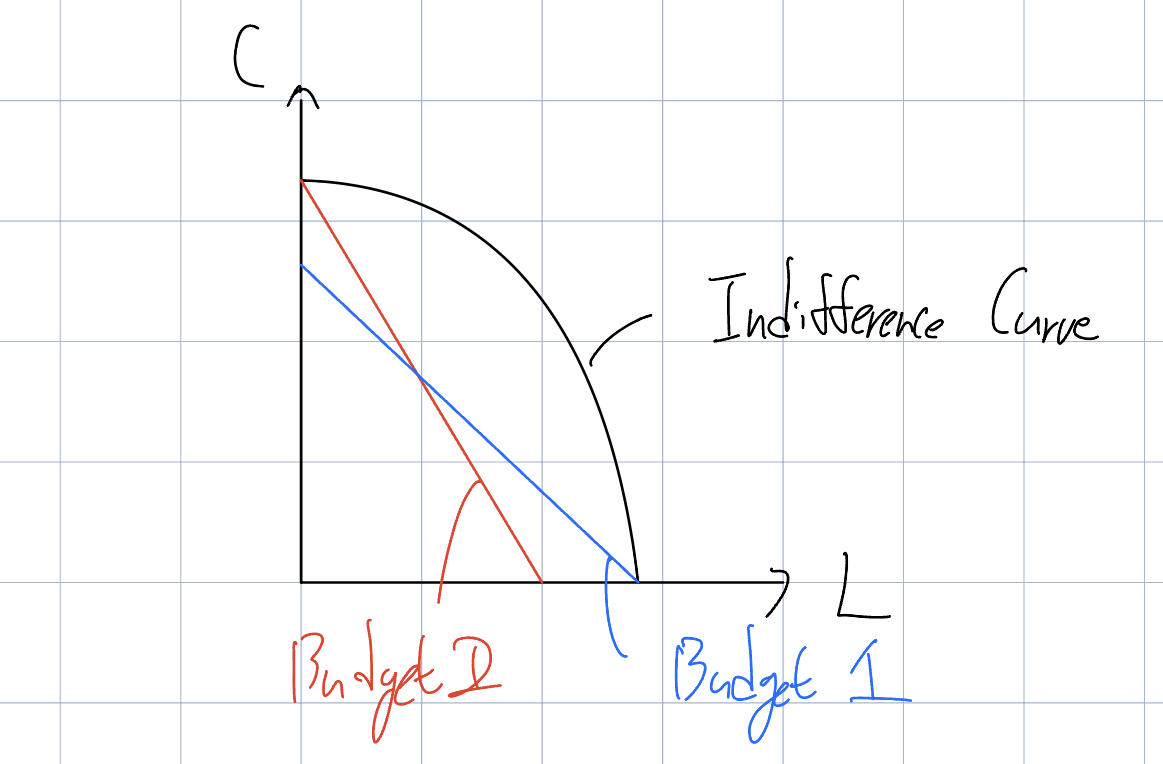 C
Indifference Curve
L
Budget 2
Budget 1